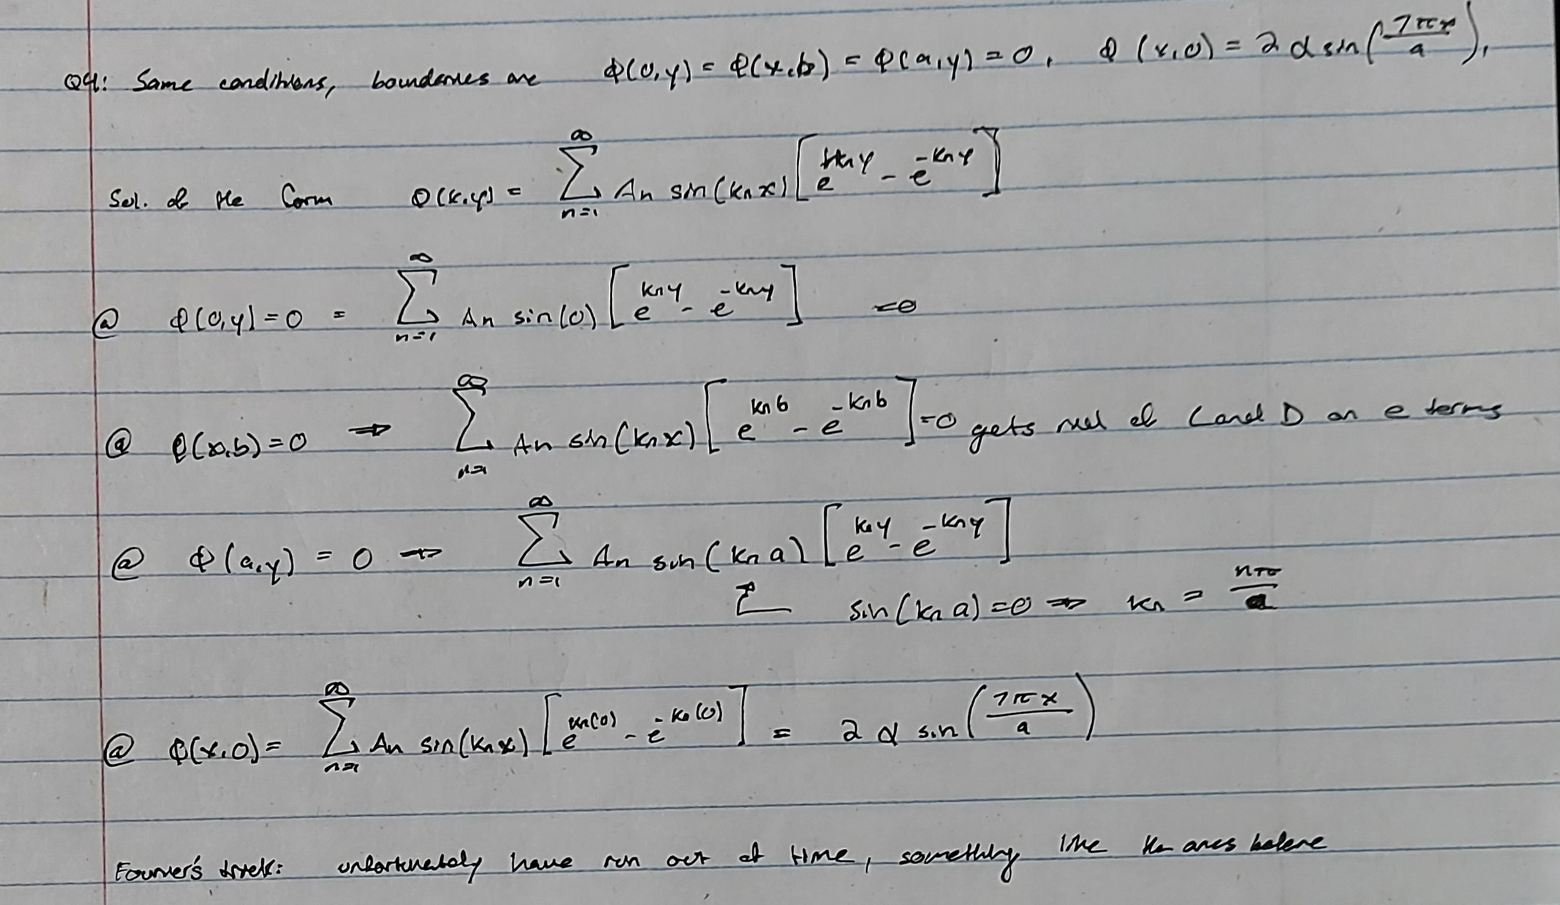 Q4: Same conditions, boundaries are Φ(0,y) = Φ(x,b) = Φ(a,y) = 0, Φ(x,0) = 2 α sin(7πx/a),
Sol. of the form Φ(x,y) = ∑_{n=1}^{∞} An sin(kn x) [e^{kn y} - e^{-kn y}]
@ Φ(0,y) = 0 = ∑_{n=1}^{∞} An sin(0) [e^{kn y} - e^{-kn y}] = 0
@ Φ(x,b) = 0 ⇒ ∑_{n=1}^{∞} An sin(kn x) [e^{kn b} - e^{-kn b}] = 0 gets rid of C and D on e terms
@ Φ(a,y) = 0 ⇒ ∑_{n=1}^{∞} An sin(kn a) [e^{kn y} - e^{-kn y}]
sin(kn a) = 0 ⇒ kn = nπ/a
@ Φ(x,0) = ∑_{n=1}^{∞} An sin(kn x) [e^{kn(0)} - e^{-kn(0)}] = 2 α sin(7πx/a)
Fourier's trick: unfortunately have run out of time, something like the ones before